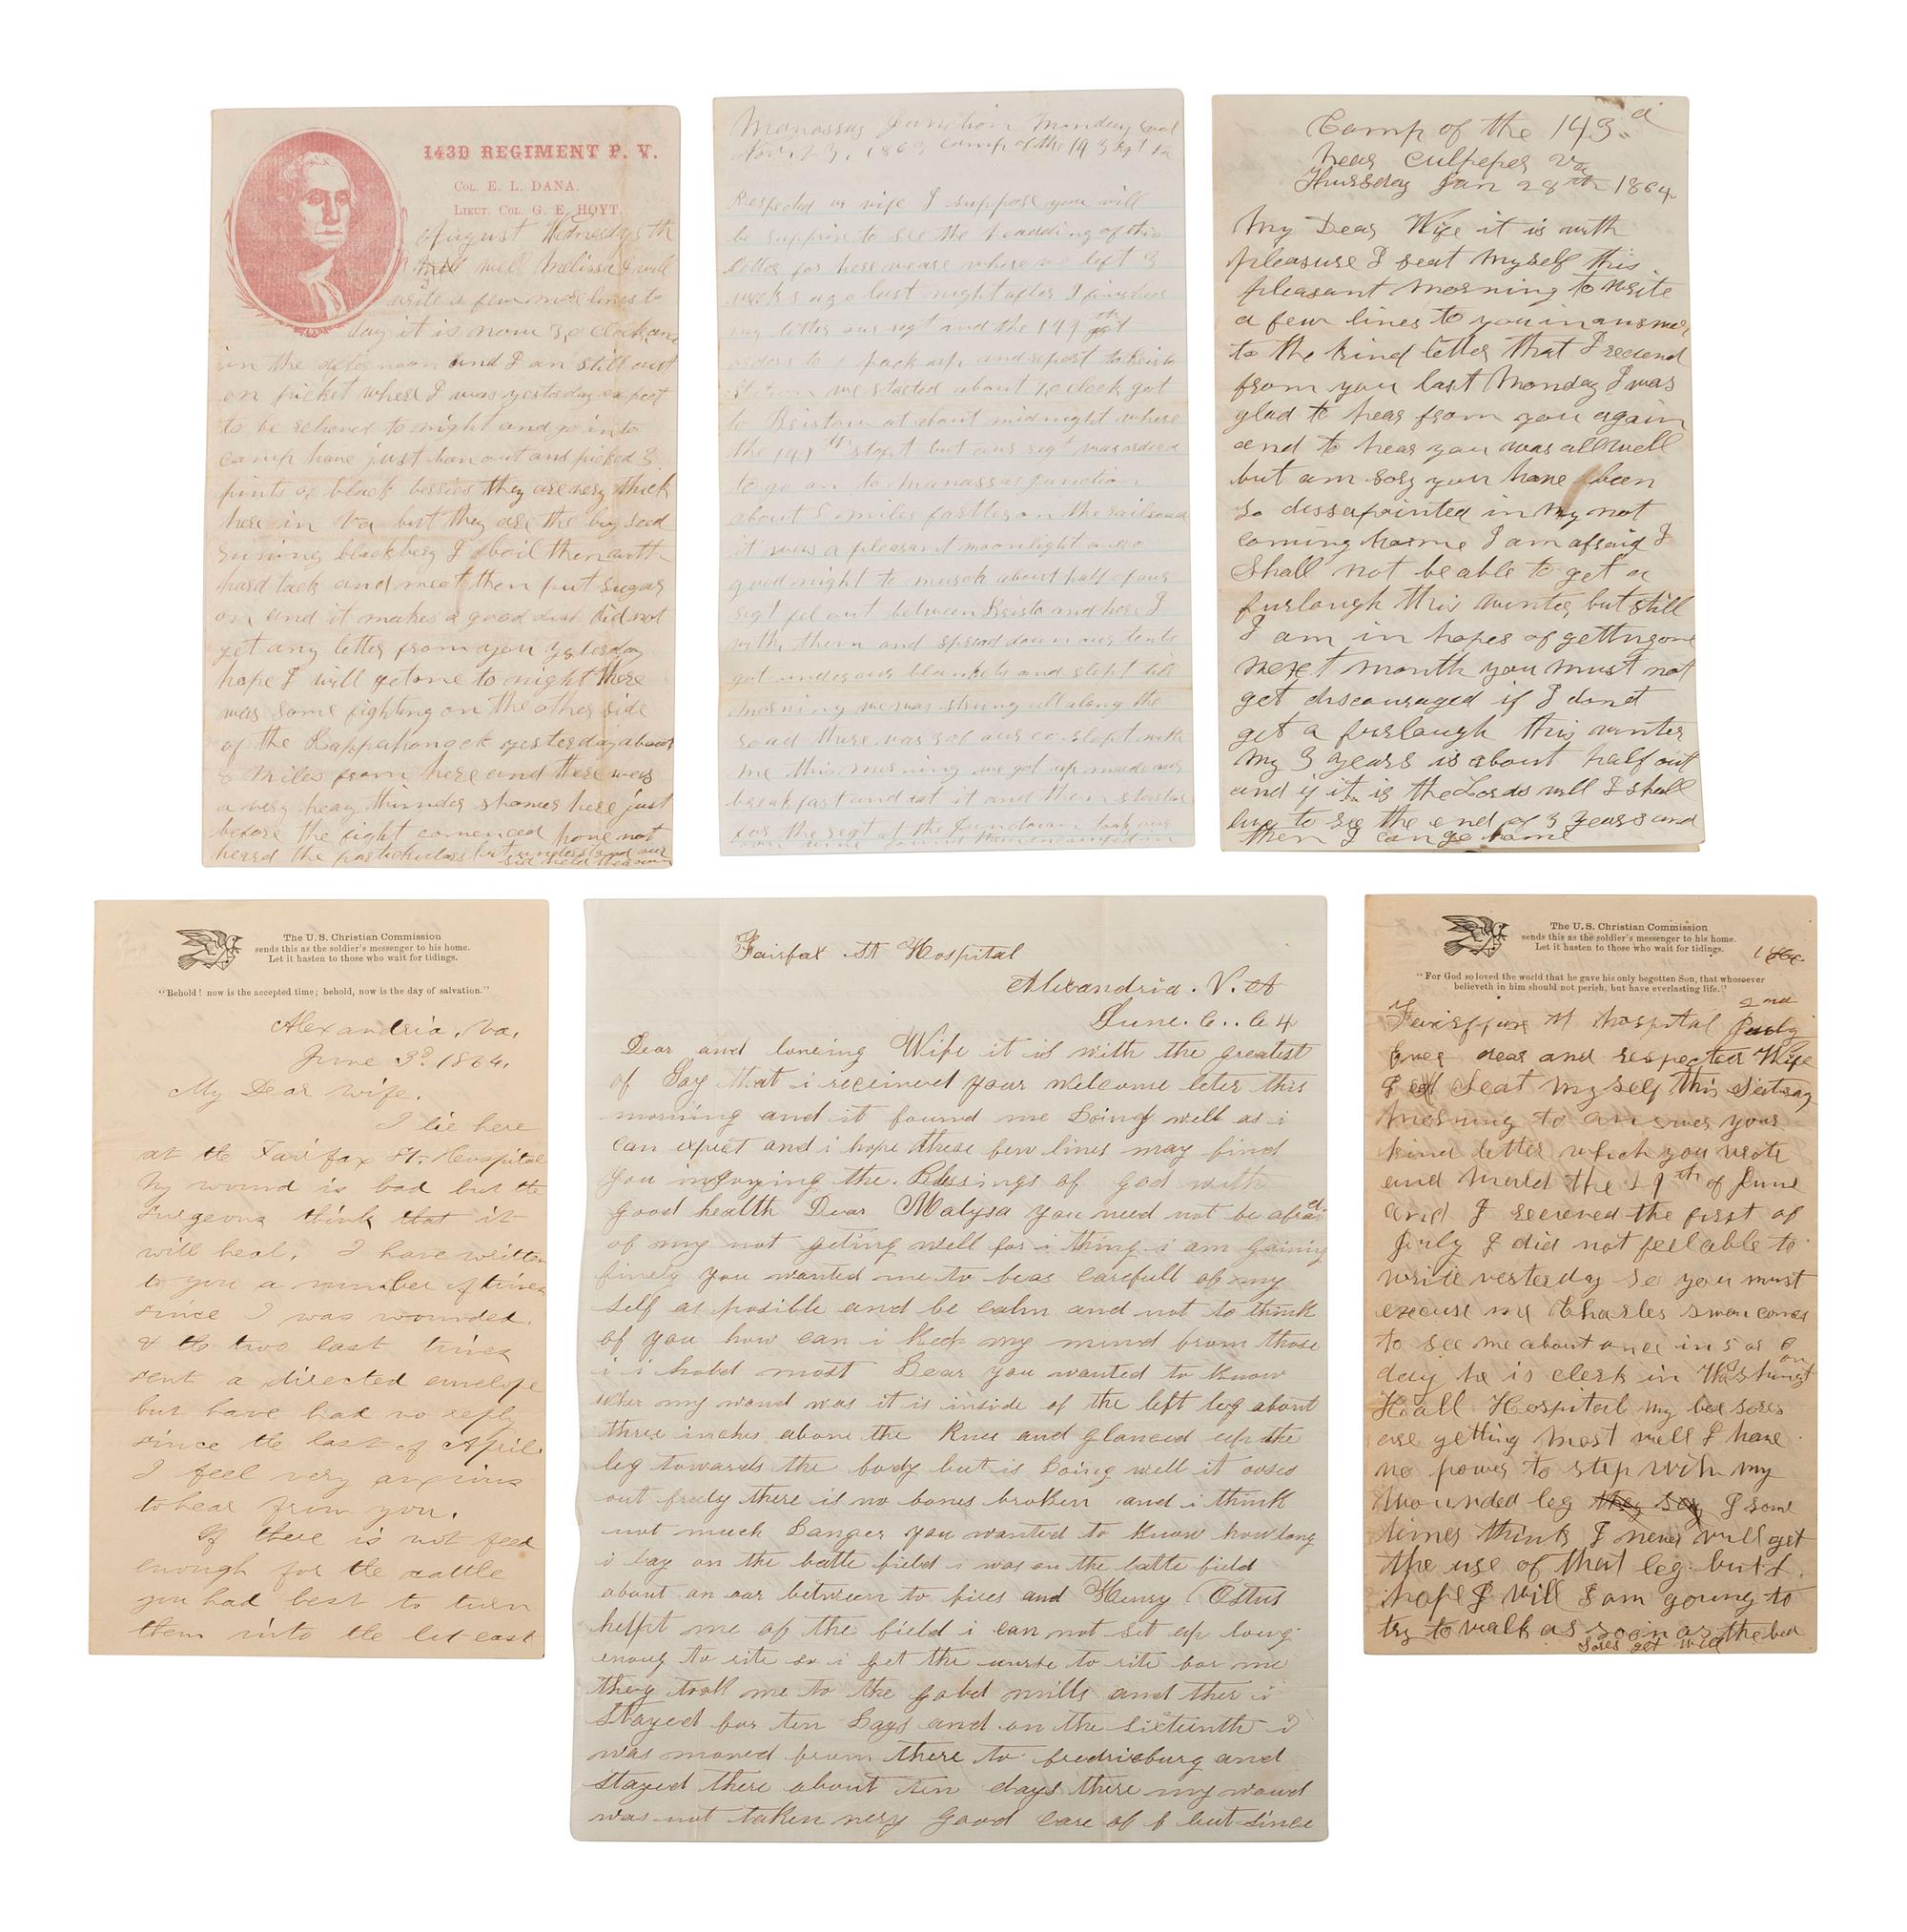 143D REGIMENT P. V.
COL. E. L. DANA.
LIEUT. COL. G. E. HOYT.
August Wednesdy 5th
well Melissa I will
write a few more lines to
day it is now 3, o clock
in the afternoon and I am still out
on picket where I was yesterday expect
to be relieved to night and go into
camp have just ben out and picked 3
pints of black berries they are very thick
here in Va but they are the
runing blackbery I boil them with
hard tack and meat then put sugar
on and it makes a good did not
get any letter from you yesterday
hope I will get one to night there
was some fighting on the other side
of the Rappahonock yesterday about
8 miles from here and there was
a very heavy thunder shower here just
before the fight comenced have not
herd the particulars but understand our
side held their own
Manassas Junction Monday
Nov. 23. 1863 Camp of the 143 Regt
Respected wife I suppose you will
be supprise to see the headding of this
letter for here we are where we left 3
weeks ago last night after I finished
my letter our regt and the 149th regt
orders to pack up and report to Bristo
we started about 7 o clock got
to Bristow at about midnight where
the 149th stopt but our regt was ordered
to go on to Manassas Junction
about 5 miles farther on the railroad
it was a pleasant moonlight
good night to march about half of our
regt fel out between Bristo and here I
with them and spread down our tents
got under our blankets and slept till
morning we was strung all along the
road there was 3 of our co slept with
me this morning we got up made our
breakfast and eat it and then started
for the regt at the took our
Camp of the 143d
near Culpeper Va
Thursday Jan 28th 1864
My Dear Wife it is with
pleasure I seat myself this
pleasant morning to write
a few lines to you in answer
to the kind letter that I receivd
from you last Monday I was
glad to hear from you again
and to hear you was all well
but am sory you have been
so dissapointed in my not
coming home I am afraid I
Shall not be able to get a
furlough this winter but still
I am in hopes of getting one
next month you must not
get discouraged if I dont
get a furlough this winter
my 3 years is about half out
and if it is the Lords will I shall
live to see the end of 3 years and
then I can go home
The U. S. Christian Commission
sends this as the soldier's messenger to his home.
Let it hasten to those who wait for tidings.
"Behold! now is the accepted time; behold, now is the day of salvation."
Alexandria, Va,
June 3d. 1864.
My Dear wife.
I lie here
at the Fairfax St. Hospital
My wound is bad but the
surgeons think that it
will heal. I have written
to you a number of times
since I was wounded.
& the two last times
sent a directed envelope
but have had no reply
since the last of April.
I feel very anxious
to hear from you.
If there is not feed
enough for the cattle
you had best to turn
them into the lot east
Fairfax St Hospital
Alexandria. V. A
June. 6.. 64
Dear and loveing Wife it is with the greatest
of Joy that i received your welcome leter this
morning and it found me Doing well as i
can expect and i hope these few lines may find
you injoying the. Blessings of god with
good health Dear Malysa you need not be afraid
of my not geting well for i thing i am gaining
finely you wanted me to beas carefull of my
self as posible and be calm and not to think
of you how can i keep my mind from those
i i hold most Dear you wanted to know
wher my wound was it is inside of the left leg about
three inches above the Knee and glanced up the
leg towards the body but is Doing well it oozes
out freely there is no bones broken and i think
not much Danger you wanted to know how long
i lay on the battle field i was on the batle field
about an our between to fires and Henry
helpt me of the field i can not set up long
enoug to rite so i get the nurse to rite for me
they took me to the gold mills and ther i
stayed for ten Days and on the sixteenth i
was moved from there to fredricburg and
stayed there about ten days there my wound
was not taken very good care of f but since
The U. S. Christian Commission
sends this as the soldier's messenger to his home.
Let it hasten to those who wait for tidings.
"For God so loved the world that he gave his only begotten Son, that whosoever
believeth in him should not perish, but have everlasting life."
2nd
St hospital July
Ever dear and respected Wife
I Seat myself this Saturday
morning to answer your
kind letter which you wrote
and maild the 29th of June
and I recieved the first of
July I did not feel able to
write yesterday so you must
excuse me Charles Swan comes
to see me about once in 5 or 6
day he is clerk in Washingt on
Hall Hospital my bed sores
are getting most well I have
no power to step with my
wounded leg they say I some
times think I never will get
the use of that leg. but I
hope I will I am going to
try to walk as soon as the bed
sores get well